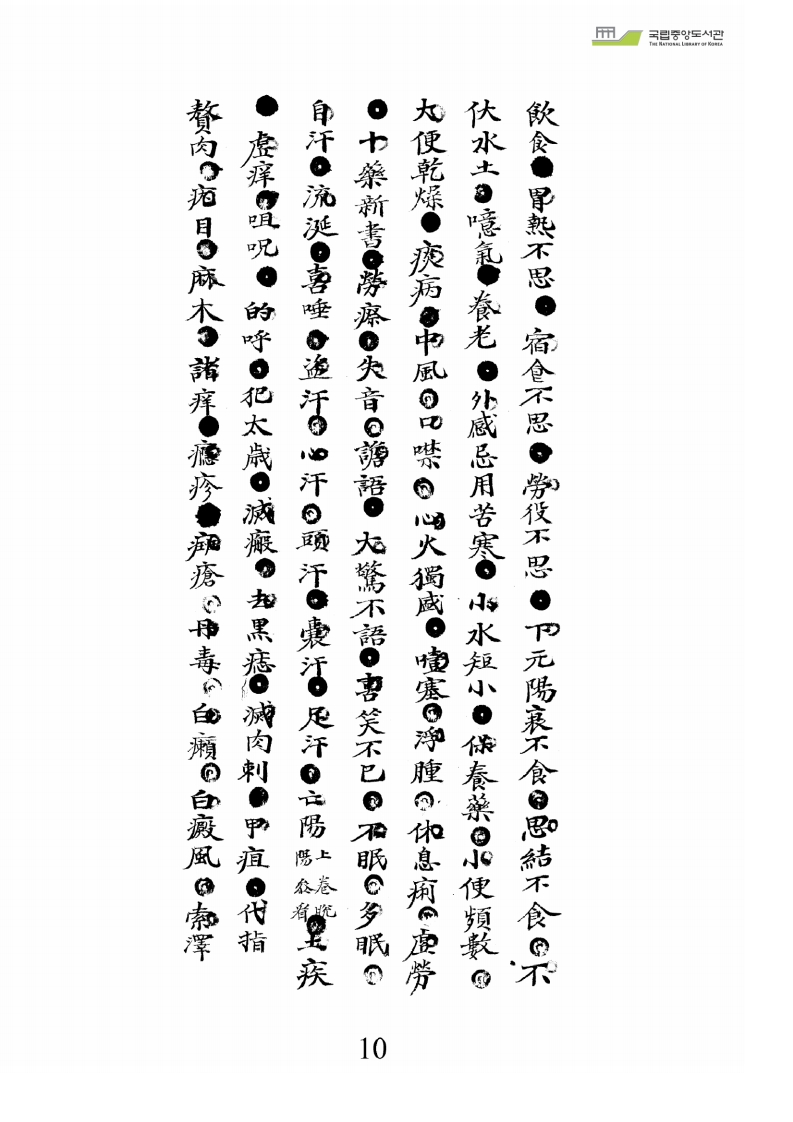 국립중앙도서관
THE NATIONAL LIBRARY OF KOREA
飮食●胃熱不思●宿食不思●勞役不思●下元陽衰不食●思結不食●不
伏水土●噫氣●養老●外感忌用苦寒●小水短小●保養藥●小便頻數●
大便乾燥●痰病●中風●口噤●心火獨盛●嗌塞●浮腫●休息痢●虛勞
●十藥新書●勞瘵●失音●譫語●大驚不語●喜笑不已●不眠●多眠●
自汗●流涎●喜唾●盜汗●心汗●頭汗●囊汗●足汗●亡陽上卷脫陽叅看●土疾
●虛痒●咀呪●的呼●犯太歲●滅瘢●去黑痣●滅肉刺●甲疽●代指
贅肉●疣目●麻木●諸痒●癮疹●瘡●丹毒●白癩●白癜風●索澤
10